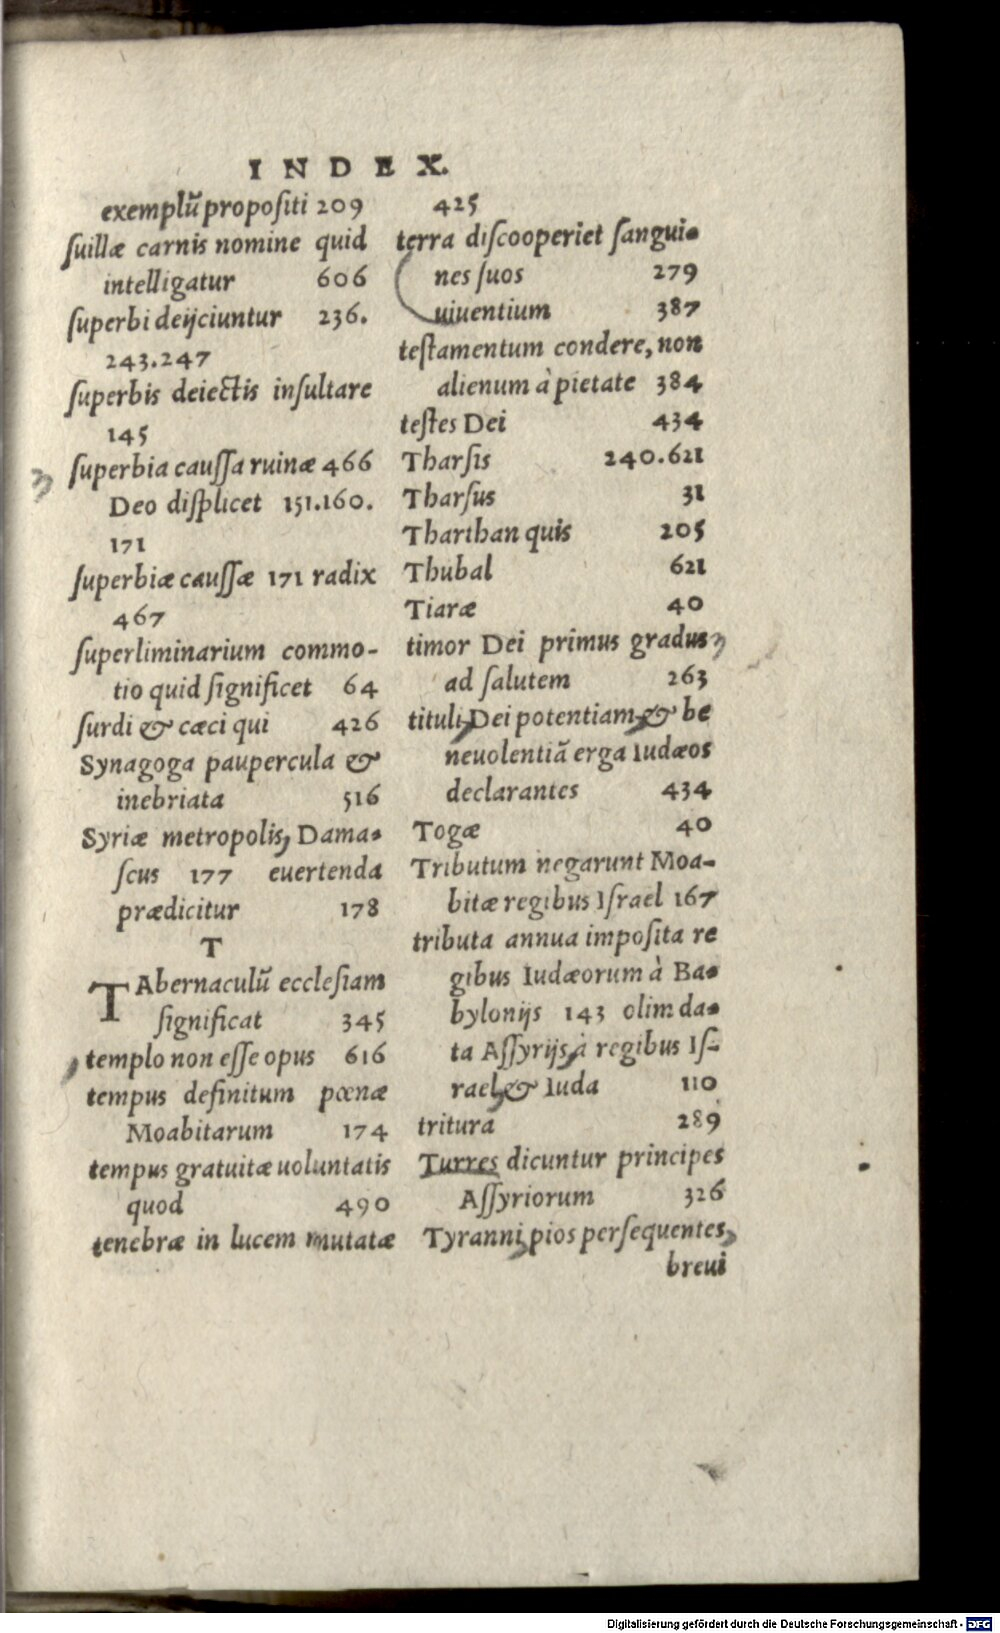 INDEX.
exemplũ propoſiti 209
ſuillæ carnis nomine quid
intelligatur 606
ſuperbi deijciuntur 236.
243.247
ſuperbis deiectis inſultare
145
ſuperbia cauſſa ruinæ 466
Deo diſplicet 151.160.
171
ſuperbiæ cauſſæ 171 radix
467
ſuperliminarium commo-
tio quid ſignificet 64
ſurdi & cæci qui 426
Synagoga paupercula &
inebriata 516
Syriæ metropolis, Dama-
ſcus 177 euertenda
prædicitur 178
T
TAbernaculũ eccleſiam
ſignificat 345
templo non eſſe opus 616
tempus definitum pœnæ
Moabitarum 174
tempus gratuitæ uoluntatis
quod 490
tenebræ in lucem mutatæ
425
terra diſcooperiet ſangui-
nes ſuos 279
uiuentium 387
teſtamentum condere, non
alienum à pietate 384
teſtes Dei 434
Tharſis 240.621
Tharſus 31
Tharthan quis 205
Thubal 621
Tiaræ 40
timor Dei primus gradus
ad ſalutem 263
tituli, Dei potentiam & be
neuolentiã erga Iudæos
declarantes 434
Togæ 40
Tributum negarunt Moa-
bitæ regibus Iſrael 167
tributa annua impoſita re
gibus Iudæorum à Ba-
bylonijs 143 olim da-
ta Aſſyrijs, à regibus Iſ-
rael, & Iuda 110
tritura 289
Turres dicuntur principes
Aſſyriorum 326
Tyranni, pios perſequentes,
breui
Digitalisierung gefördert durch die Deutsche Forschungsgemeinschaft - DFG